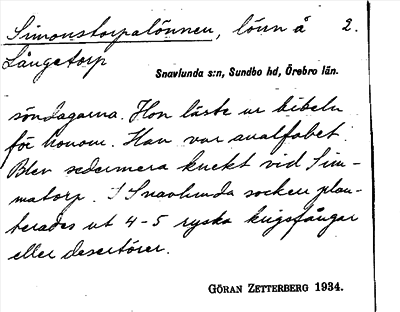 Simonstorpalönnen, lönn å 2.
Långetorp
Snavlunda s:n, Sundbo hd, Örebro län.
söndagarna. Hon läste ur bibeln
för honom. Han var analfabet.
Blev sedermera knekt vid Sim-
matorp. I Snavlunda socken plan-
terades ut 4-5 ryska krigsfångar
eller desertörer.
GÖRAN ZETTERBERG 1934.